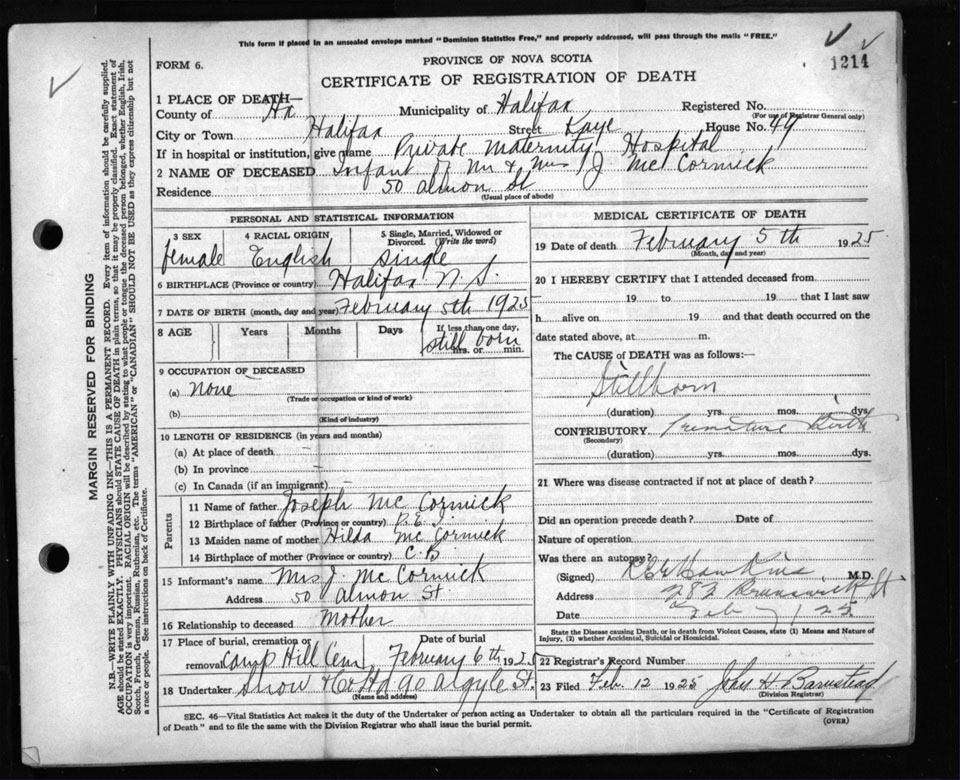 This form if placed in an unsealed envelope marked "Dominion Statistics Free," and properly addressed, will pass through the mails "FREE."
1214
FORM 6.
PROVINCE OF NOVA SCOTIA
CERTIFICATE OF REGISTRATION OF DEATH
1 PLACE OF DEATH—
County of Hx Municipality of Halifax Registered No.
(For use of Registrar General only)
City or Town Halifax Street Kaye House No. 49
If in hospital or institution, give name Private Maternity Hospital
2 NAME OF DECEASED Infant of Mr & Mrs J McCormick
Residence 50 Almon St
(Usual place of abode)
PERSONAL AND STATISTICAL INFORMATION
3 SEX 4 RACIAL ORIGIN 5 Single, Married, Widowed or Divorced. (Write the word)
female English single
6 BIRTHPLACE (Province or country) Halifax N.S.
7 DATE OF BIRTH (month, day and year) February 5th 1925
8 AGE Years Months Days If less than one day,
still born hrs. or min.
9 OCCUPATION OF DECEASED
(a) none
(Trade or occupation or kind of work)
(b)
(Kind of industry)
10 LENGTH OF RESIDENCE (in years and months)
(a) At place of death
(b) In province
(c) In Canada (if an immigrant)
Parents
11 Name of father Joseph McCormick
12 Birthplace of father (Province or country) P.E.I.
13 Maiden name of mother Hilda McCormick
14 Birthplace of mother (Province or country) C.B
15 Informant's name Mrs J. McCormick
Address 50 Almon St.
16 Relationship to deceased Mother
17 Place of burial, cremation or Date of burial
removal Camp Hill Cem February 6th 1925
18 Undertaker Snow Argyle St.
(Name and address)
MEDICAL CERTIFICATE OF DEATH
19 Date of death February 5th 1925
(Month, day and year)
20 I HEREBY CERTIFY that I attended deceased from
19 to 19 that I last saw
h alive on 19 and that death occurred on the
date stated above, at m.
The CAUSE of DEATH was as follows:—
Stillborn
(duration) yrs. mos. dys.
CONTRIBUTORY Premature Birth
(Secondary)
(duration) yrs. mos. dys.
21 Where was disease contracted if not at place of death?
Did an operation precede death? Date of
Nature of operation
Was there an autopsy?
(Signed) Hawkins M.D.
Address 282 Brunswick St.
Date Feb 25
State the Disease causing Death, or in death from Violent Causes, state (1) Means and Nature of
Injury, (2) whether Accidental, Suicidal or Homicidal.
22 Registrar's Record Number
23 Filed Feb. 12 1925 John H Barnstead
(Division Registrar)
SEC. 46—Vital Statistics Act makes it the duty of the Undertaker or person acting as Undertaker to obtain all the particulars required in the "Certificate of Registration
of Death" and to file the same with the Division Registrar who shall issue the burial permit.
(OVER)
MARGIN RESERVED FOR BINDING
N.B.—WRITE PLAINLY WITH UNFADING INK—THIS IS A PERMANENT RECORD. Every item of information should be carefully supplied.
AGE should be stated EXACTLY. PHYSICIANS should STATE CAUSE OF DEATH in plain terms, so that it may be properly classified. Exact statement of
OCCUPATION is very important. RACIAL ORIGIN will be described by stating to what people or tongue the deceased person belonged, whether English, Irish,
Scotch, French, German, Russian, Ruthenian, etc. The terms "AMERICAN" or "CANADIAN" SHOULD NOT BE USED as they express citizenship but not
a race or people. See instructions on back of Certificate.